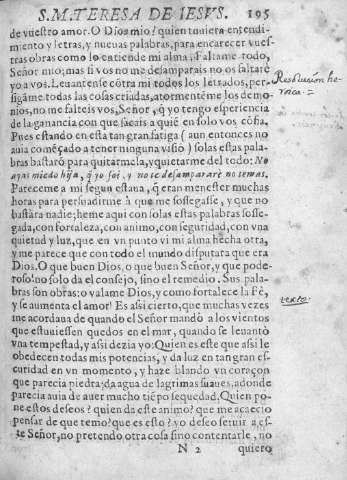 S. M. TERESA DE IESVS. 195
de vuestro amor. O Dios mio! quien tuviera entendi-
miento y letras, y nueuas palabras, para encarecer vues-
tras obras como lo entiende mi alma. Faltame todo,
Señor mio; mas si vos no me desamparais no os faltarè
yo a vos. Leuantense cõtra mi todos los letrados, per-
sigãme todas las cosas criadas, atormentẽme los demo-
nios, no me falteis vos, Señor, q̃ yo tengo esperiencia
de la ganancia con que sacais a quiẽ en solo vos cõfia.
Pues estando en esta tan gran fatiga (aun entonces no
auia comẽçado a tener ninguna visiõ) solas estas palabras
bastarõ para quitarmela, y quietarme del todo: No
ayas miedo hija, q̃ yo soi, y no te desampararè no temas.
Pareceme a mi segun estaua, q̃ eran menester muchas
horas para persuadirme à que me sossegasse, y que no
bastàra nadie; heme aqui con solas estas palabras sosse-
gada, con fortaleza, con animo, con seguridad, con vna
quietud y luz, que en vn punto vi mi alma hecha otra,
y me parece que con todo el mundo disputara que era
Dios. O que buen Dios, o que buen Señor, y que pode-
roso! no solo da el consejo, sino el remedio. Sus pala-
bras son obras: o valame Dios, y como fortalece la Fè,
y se aumenta el amor! Es assi cierto, que muchas vezes
me acordaua de quando el Señor mandò a los vientos
que estuuiessen quedos en el mar, quando se leuantò
vna tempestad, y assi dezia yo: Quien es este que assi le
obedecen todas mis potencias, y da luz en tan gran es-
curidad en vn momento, y haze blando vn coraçon
que parecia piedra; da agua de lagrimas suaues, adonde
parecia auia de auer mucho tiẽpo sequedad. Quien po-
ne estos deseos? quien da este animo? que me acaecio
pensar de que temo? que es esto? yo deseo seruir a es-
te Señor, no pretendo otra cosa sino contentarle, no
N 2 quiero
Resolucion he-
roica =
texto